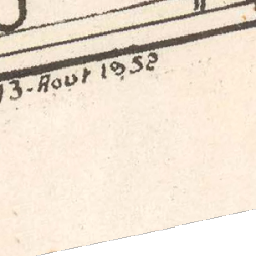 13-Aout 1952